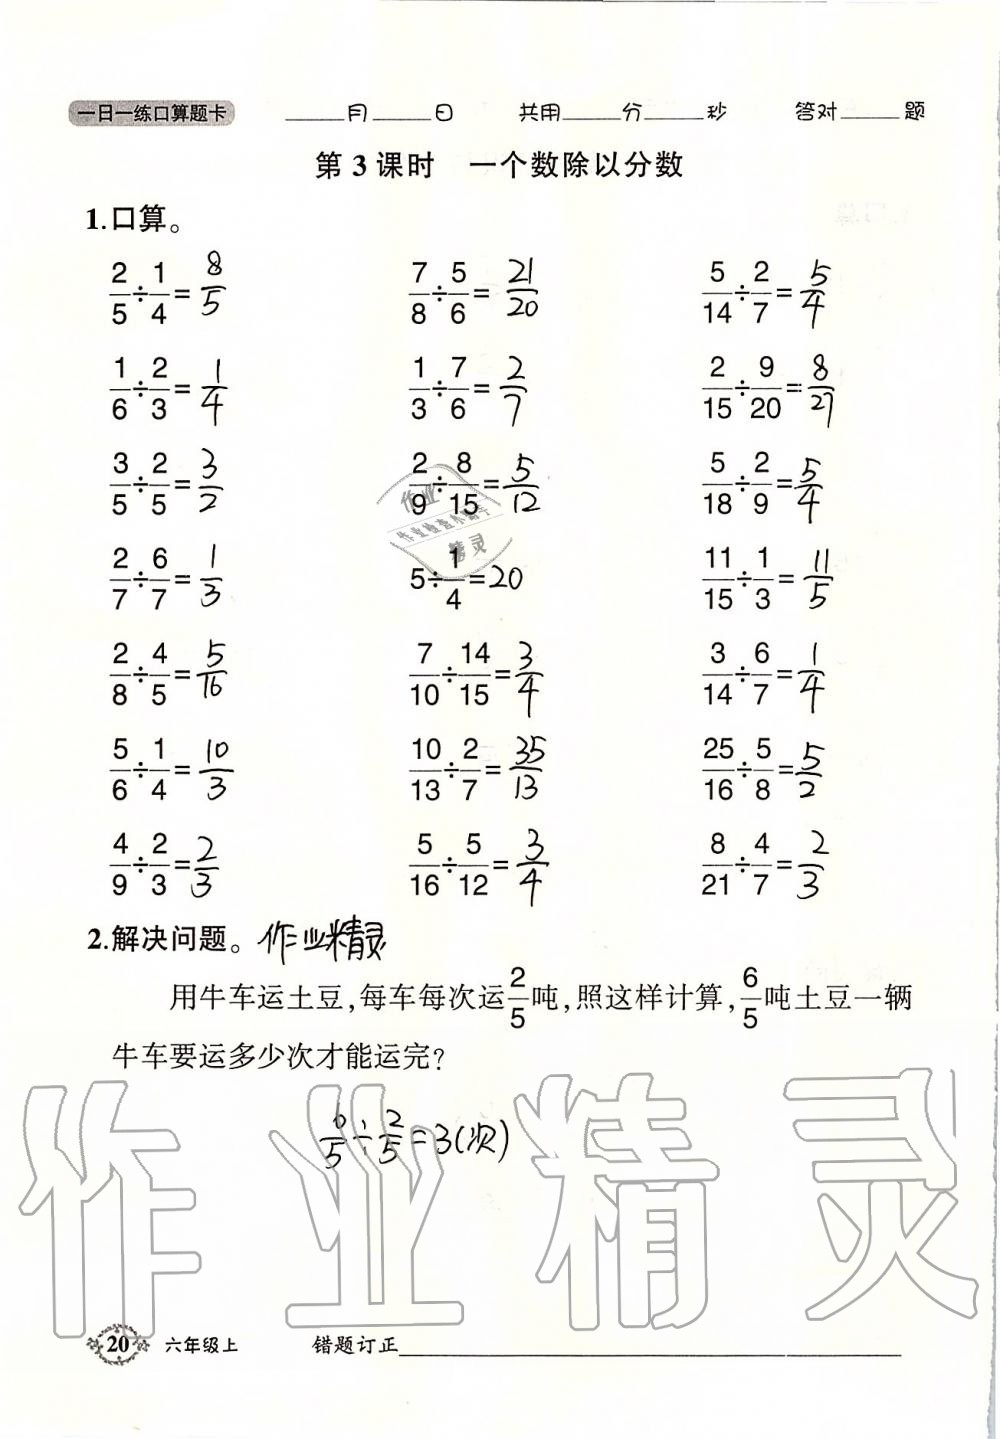 一日一练口算题卡 ____月____日 共用____分____秒 答对____题
第3课时 一个数除以分数
1.口算。
2/5÷1/4=8/5 7/8÷5/6=21/20 5/14÷2/7=5/4
1/6÷2/3=1/4 1/3÷7/6=2/7 2/15÷9/20=8/27
3/5÷2/5=3/2 2/9÷8/15=5/12 5/18÷2/9=5/4
2/7÷6/7=1/3 5÷1/4=20 11/15÷1/3=11/5
2/8÷4/5=5/16 7/10÷14/15=3/4 3/14÷6/7=1/4
5/6÷1/4=10/3 10/13÷2/7=35/13 25/16÷5/8=5/2
4/9÷2/3=2/3 5/16÷5/12=3/4 8/21÷4/7=2/3
作业
作业检查小助手
精灵
2.解决问题。作业精灵
用牛车运土豆,每车每次运2/5吨,照这样计算,6/5吨土豆一辆
牛车要运多少次才能运完?
6/5÷2/5=3(次)
作业精灵
20 六年级上 错题订正____